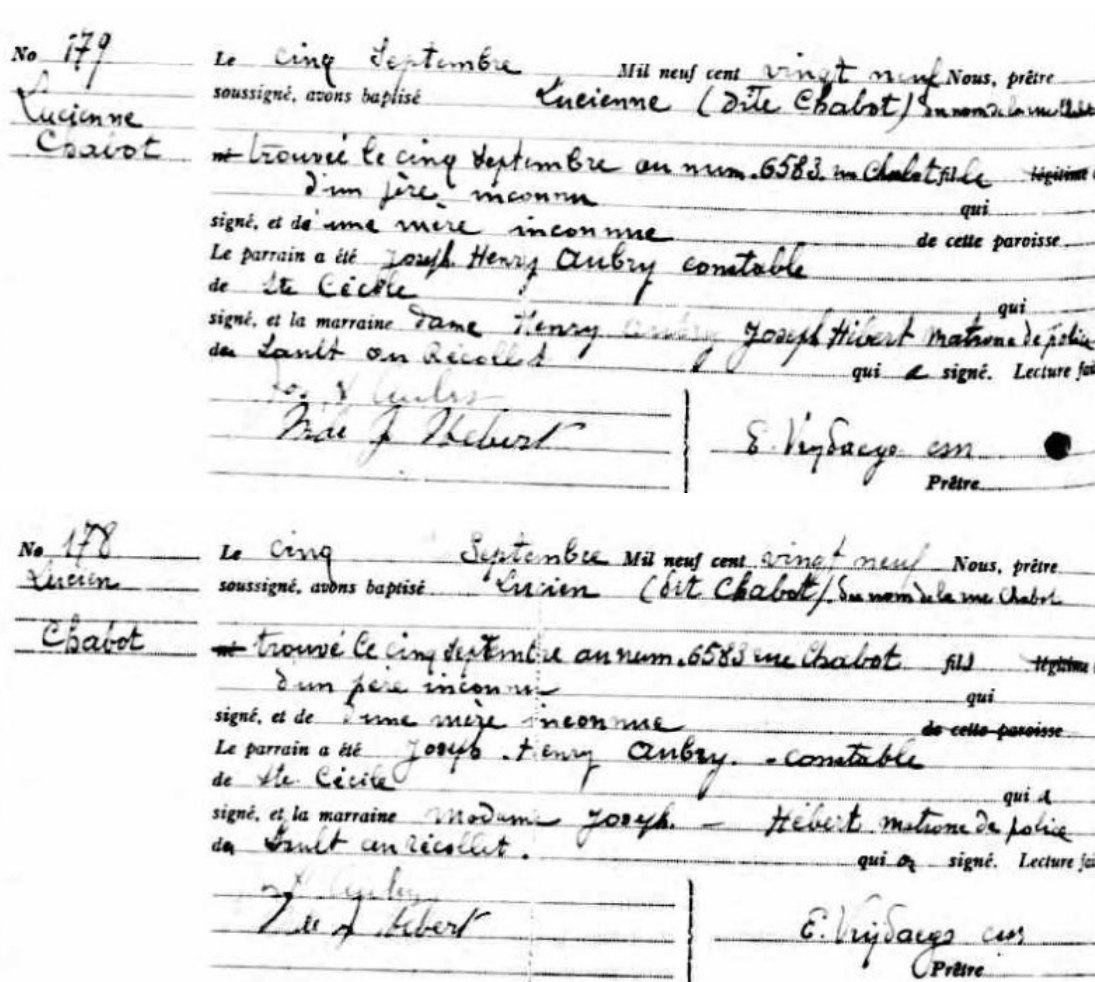 No 179
Lucienne
Chabot
Le cinq Septembre Mil neuf cent vingt neuf Nous, prêtre
soussigné, avons baptisé Lucienne (dite Chabot) du nom de la rue Chabot
né trouvée le cinq Septembre au num. 6583. rue Chabot fille légitime
d'un père inconnu qui
signé, et de d'une mère inconnue de cette paroisse
Le parrain a été Joseph Henry Aubry constable
de Ste Cécile qui
signé, et la marraine dame Henry Aubry Joseph Hébert matrone de police
du Sault au Récollet qui a signé. Lecture fai
Aubry
Mde J Hébert
E. Vrydaegs
Prêtre
No 178
Lucien
Chabot
Le cinq Septembre Mil neuf cent vingt neuf Nous, prêtre
soussigné, avons baptisé Lucien (dit Chabot) du nom de la rue Chabot
né trouvé le cinq Septembre au num. 6583 rue Chabot fils légitime
d'un père inconnu qui
signé, et de d'une mère inconnue de cette paroisse
Le parrain a été Joseph Henry Aubry. - constable
de Ste Cécile qui a
signé, et la marraine Madame Joseph. — Hébert matrone de police
du Sault au récollet. qui a signé. Lecture fai
Aubry
J Hébert
E. Vrydaegs
Prêtre